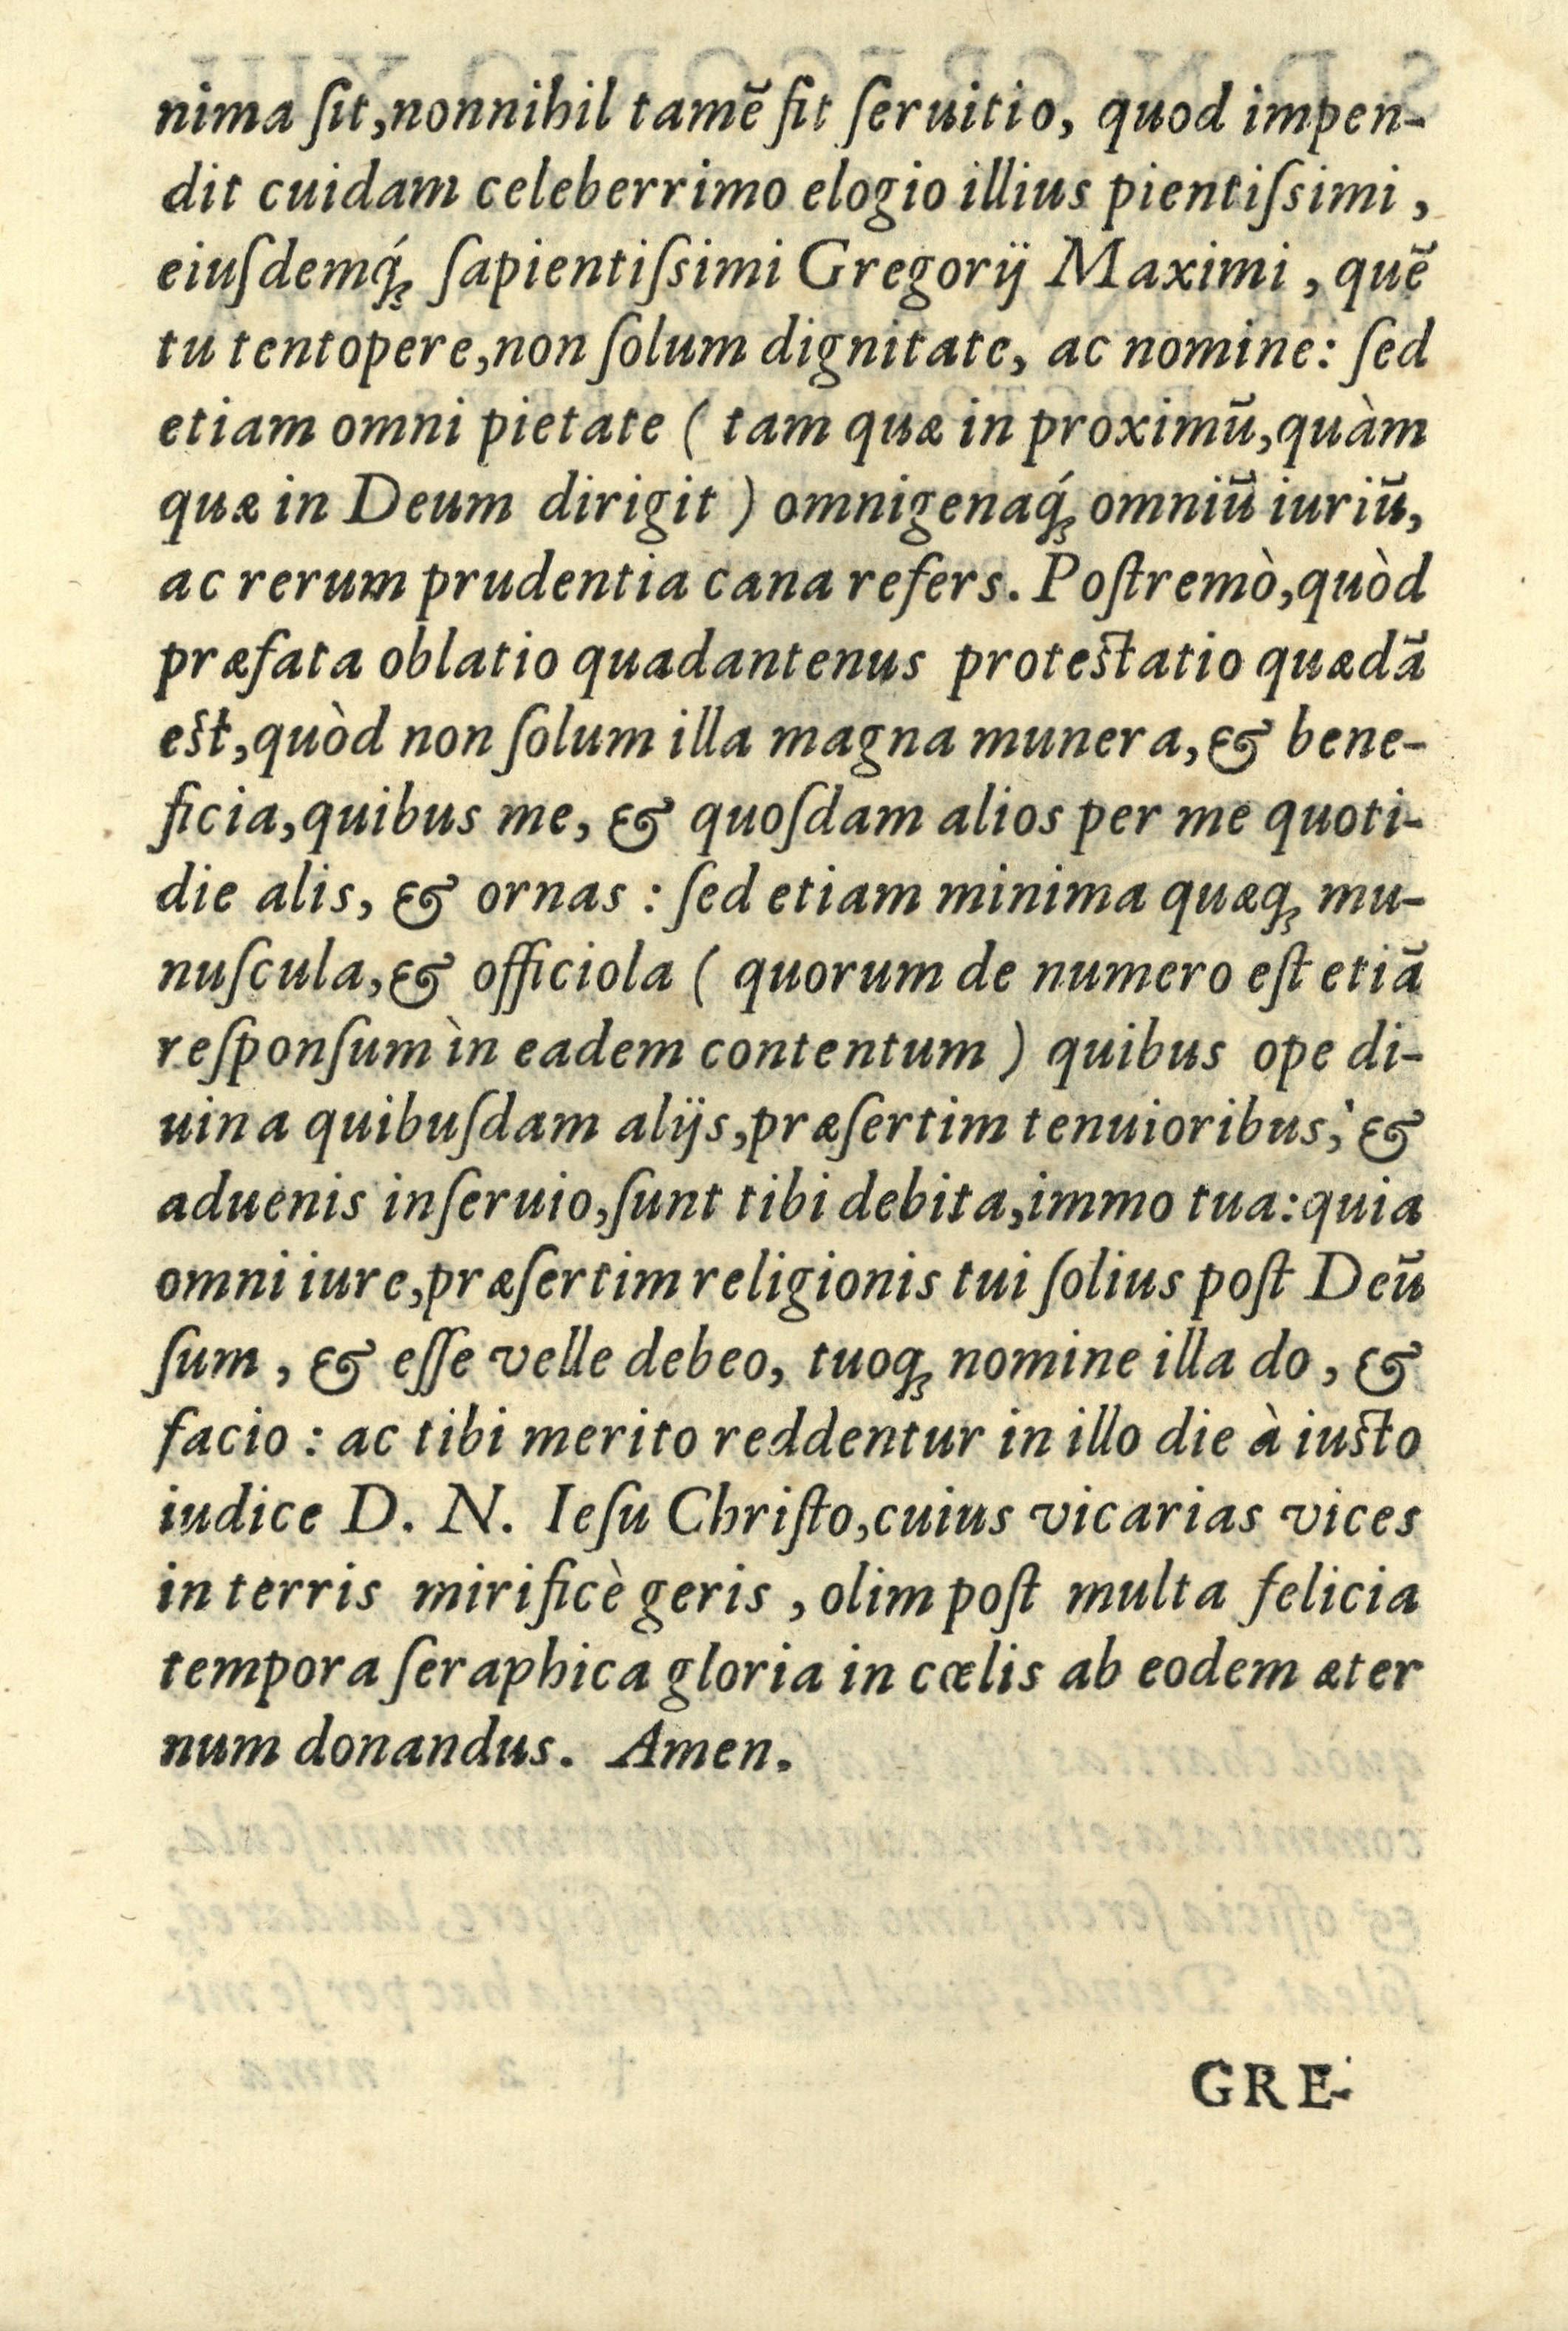 nima ſit,nonnihil tamē fit ſeruitio, quod impen-
dit cuidam celeberrimo elogio illius pientiſsimi ,
eiuſdemq́; ſapientiſsimi Gregorij Maximi , quē
tu tentopere,non ſolum dignitate, ac nomine: ſed
etiam omni pietate ( tam quæ in proximū,quàm
quæ in Deum dirigit ) omnigenaq́; omniū iuriū,
ac rerum prudentia cana refers. Poſtremò,quòd
præfata oblatio quadantenus protestatio quædā
est,quòd non ſolum illa magna munera,& bene-
ficia,quibus me, & quoſdam alios per me quoti-
die alis, & ornas : ſed etiam minima quæq; mu-
nuſcula,& officiola ( quorum de numero eſt etiā
reſponſum ìn eadem contentum ) quibus ope di-
uina quibuſdam alijs,præſertim tenuioribus, &
aduenis inſeruio,ſunt tibi debita,immo tua: quia
omni iure,præſertim religionis tui ſolius poſt Deū
ſum , & eſſe velle debeo, tuoq; nomine illa do , &
facio : ac tibi merito reddentur in illo die à iusto
iudice D. N. Ieſu Chriſto,cuius vicarias vices
in terris mirificè geris , olim poſt multa felicia
tempora ſeraphica gloria in cœlis ab eodem æter
num donandus. Amen.
GRE-